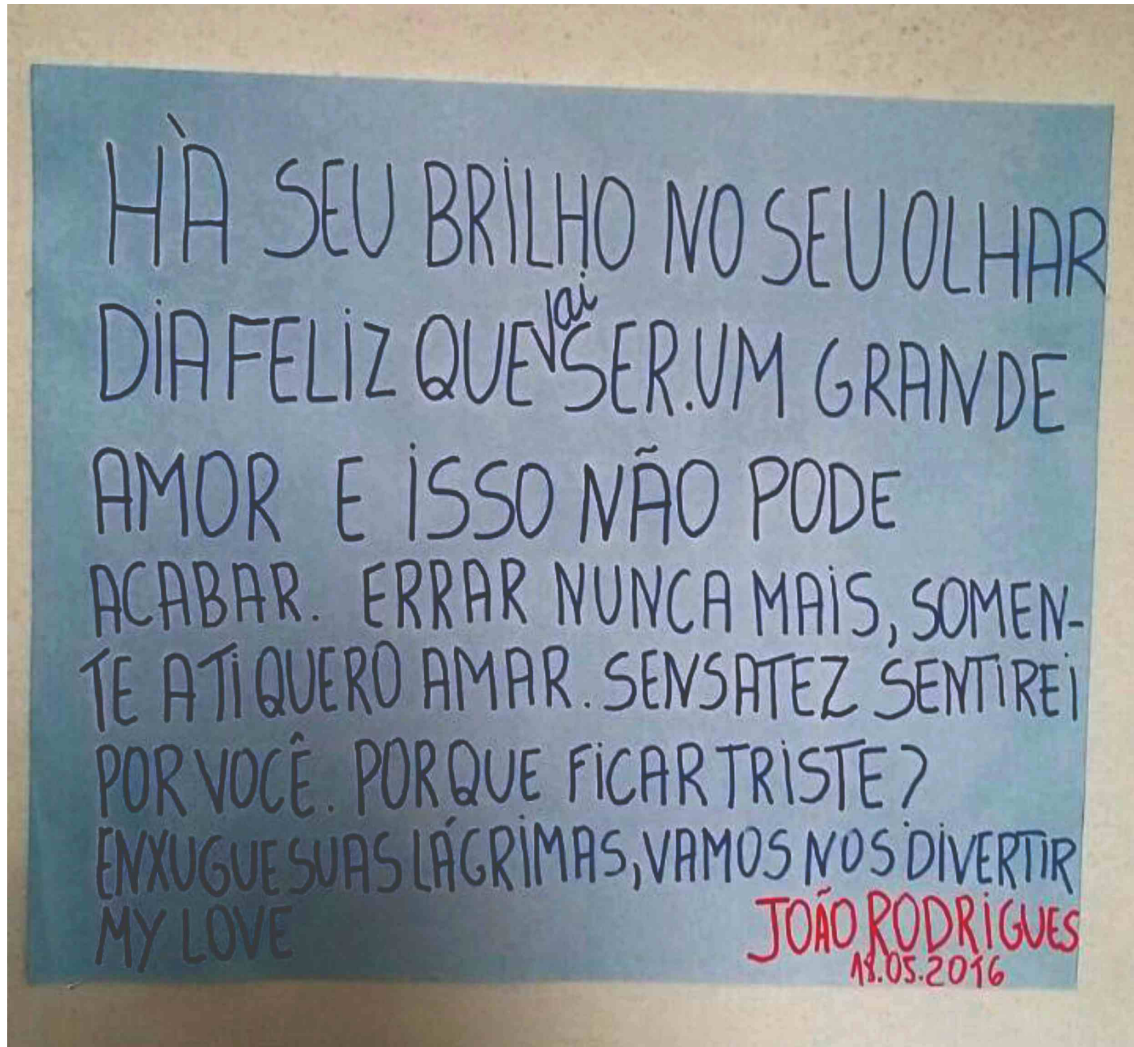 HÀ SEU BRILHO NO SEU OLHAR
DIA FELIZ QUE vai SER. UM GRANDE
AMOR E ISSO NÃO PODE
ACABAR. ERRAR NUNCA MAIS, SOMEN-
TE A TI QUERO AMAR. SENSATEZ SENTIREI
POR VOCÊ. PORQUE FICAR TRISTE?
ENXUGUE SUAS LÁGRIMAS, VAMOS NOS DIVERTIR
MY LOVE
JOÃO RODRIGUES
18.05.2016